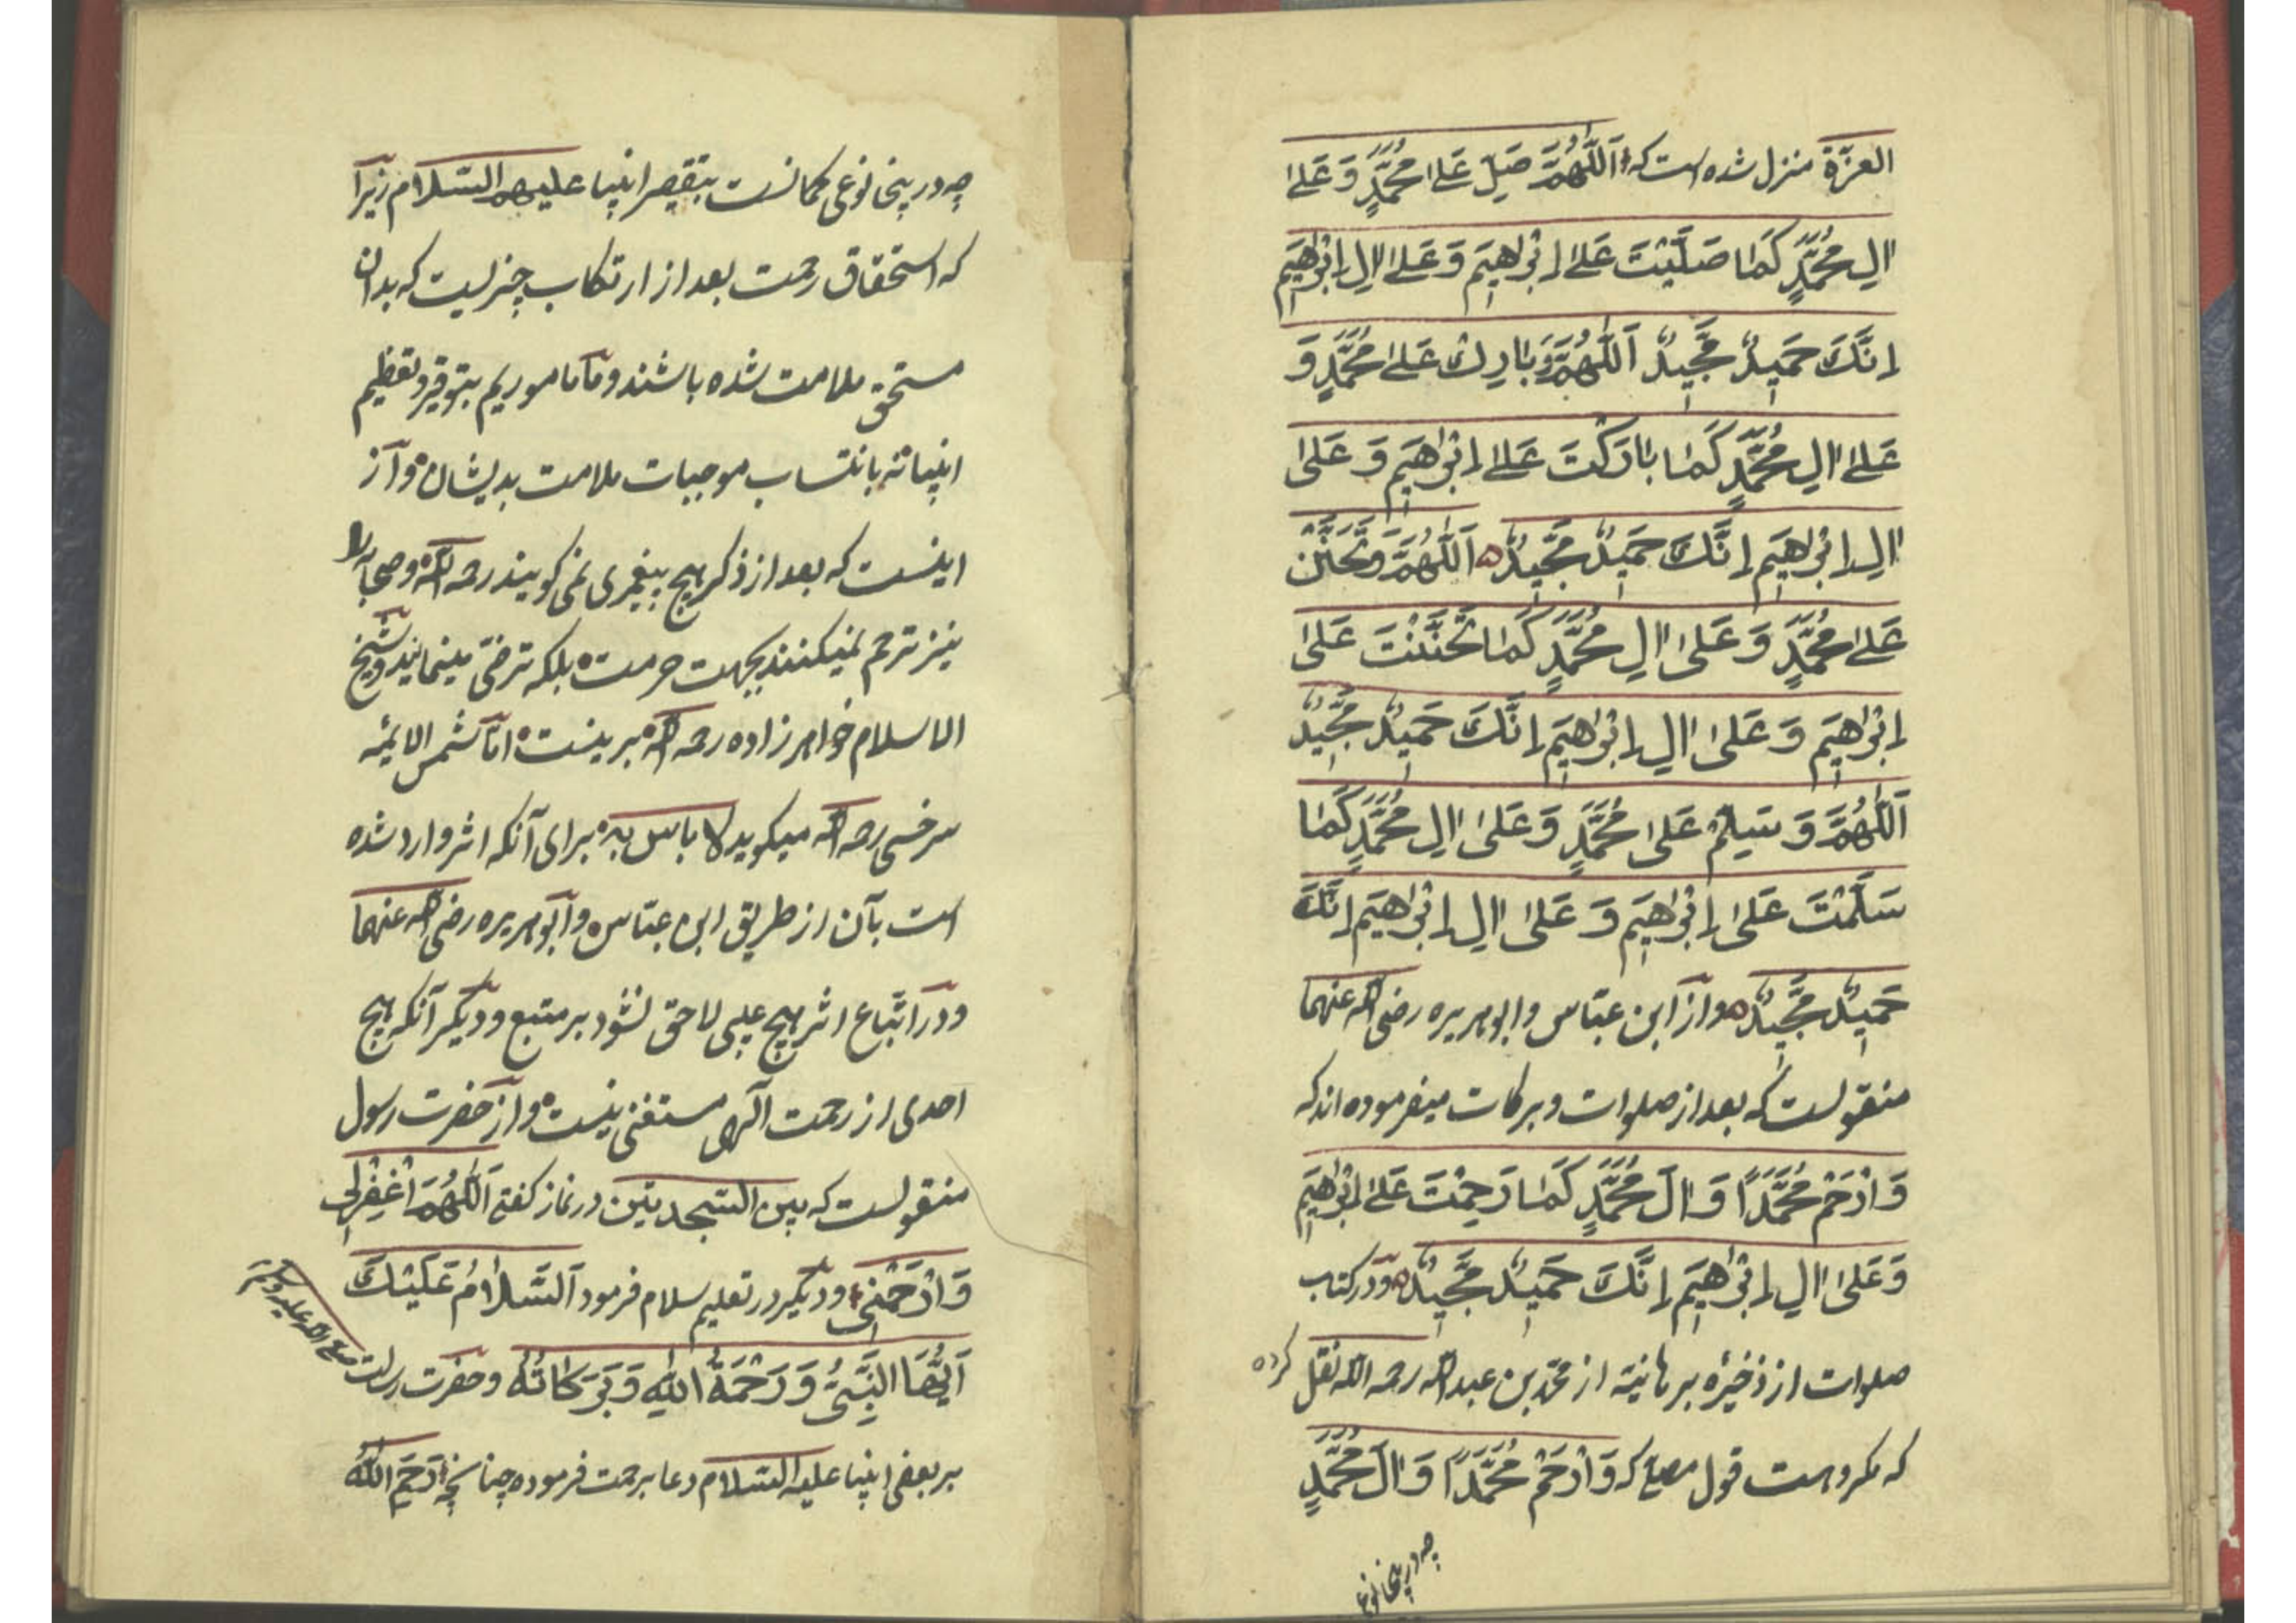 العزّة منزل شده است که اَللّٰهُمَّ صَلِّ عَلٰی مُحَمَّدٍ وَ عَلٰی
اٰلِ مُحَمَّدٍ کَمٰا صَلَّیْتَ عَلٰی اِبْرٰاهِیمَ وَ عَلٰی اٰلِ اِبْرٰاهِیمَ
اِنَّكَ حَمِیدٌ مَّجِیدٌ اَللّٰهُمَّ وَ بٰارِكْ عَلٰی مُحَمَّدٍ وَ
عَلٰی اٰلِ مُحَمَّدٍ کَمٰا بٰارَکْتَ عَلٰی اِبْرٰاهِیمَ وَ عَلٰی
اٰلِ اِبْرٰاهِیمَ اِنَّكَ حَمِیدٌ مَّجِیدٌ اَللّٰهُمَّ وَ تَحَنَّنْ
عَلٰی مُحَمَّدٍ وَ عَلٰی اٰلِ مُحَمَّدٍ کَمٰا تَحَنَّنْتَ عَلٰی
اِبْرٰاهِیمَ وَ عَلٰی اٰلِ اِبْرٰاهِیمَ اِنَّكَ حَمِیدٌ مَّجِیدٌ
اَللّٰهُمَّ وَ سَلِّمْ عَلٰی مُحَمَّدٍ وَ عَلٰی اٰلِ مُحَمَّدٍ کَمٰا
سَلَّمْتَ عَلٰی اِبْرٰاهِیمَ وَ عَلٰی اٰلِ اِبْرٰاهِیمَ اِنَّكَ
حَمِیدٌ مَّجِیدٌ و از ابن عبّاس و ابو هریره رضی الله عنهما
منقولست که بعد از صلوات و برکات میفرموده اند که
وَ ارْحَمْ مُحَمَّدًا وَ اٰلَ مُحَمَّدٍ کَمٰا رَحِمْتَ عَلٰی اِبْرٰاهِیمَ
وَ عَلٰی اٰلِ اِبْرٰاهِیمَ اِنَّكَ حَمِیدٌ مَّجِیدٌ و در کتاب
صلوات از ذخیرهٔ برهانیّه از محمّد بن عبد الله رحمه الله نقل کرده
که مکروهست قول مصلّی که وَ ارْحَمْ مُحَمَّدًا وَ اٰلَ مُحَمَّدٍ
چه درینجا نوعی
چه درینجا نوعی کمانست بتقصیر انبیا علیهم السّلام زیرا
که استحقاق رحمت بعد از ارتکاب چیزیست که بدان
مستحق ملامت شده باشند و ما ماموریم بتوقیر و تعظیم
انبیا نه بانتساب موجبات ملامت بدیشان و از
اینست که بعد از ذکر هیچ پیغمبری نمی کویند رحمه الله و صحابه را
نیز ترحم نمیکنند بجهت حرمت بلکه ترضّی مینمایند و شیخ
الاسلام خواهر زاده رحمه الله برینست امّا شمس الائمّه
سرخسی رحمه الله میکوید لا باس به برای آنکه اثر وارد شده
است بآن از طریق ابن عبّاس و ابو هریره رضی الله عنهما
و در اتّباع اثر هیچ عیبی لاحق نشود بر متبع و دیکر آنکه هیچ
احدی از رحمت آلهی مستغنی نیست و از حضرت رسول
منقولست که بین السّجدتین در نماز کفتی اَللّٰهُمَّ اغْفِرْ لِی
وَ ارْحَمْنِی و دیکر در تعلیم سلام فرمود اَلسَّلٰامُ عَلَیْكَ
اَیُّهَا النَّبِیُّ وَ رَحْمَةُ اللهِ وَ بَرَکٰاتُهُ و حضرت رسالت صلی الله علیه وسلم
بر بعضی انبیا علیه السّلام دعا برحمت فرموده چنانچه رَحِمَ اللهُ